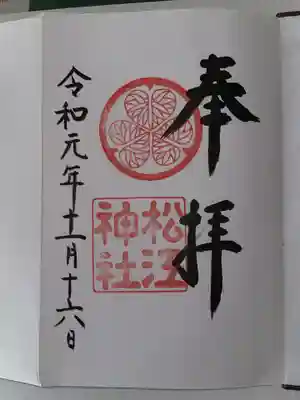 奉拝
松江
神社
令和元年十一月十六日